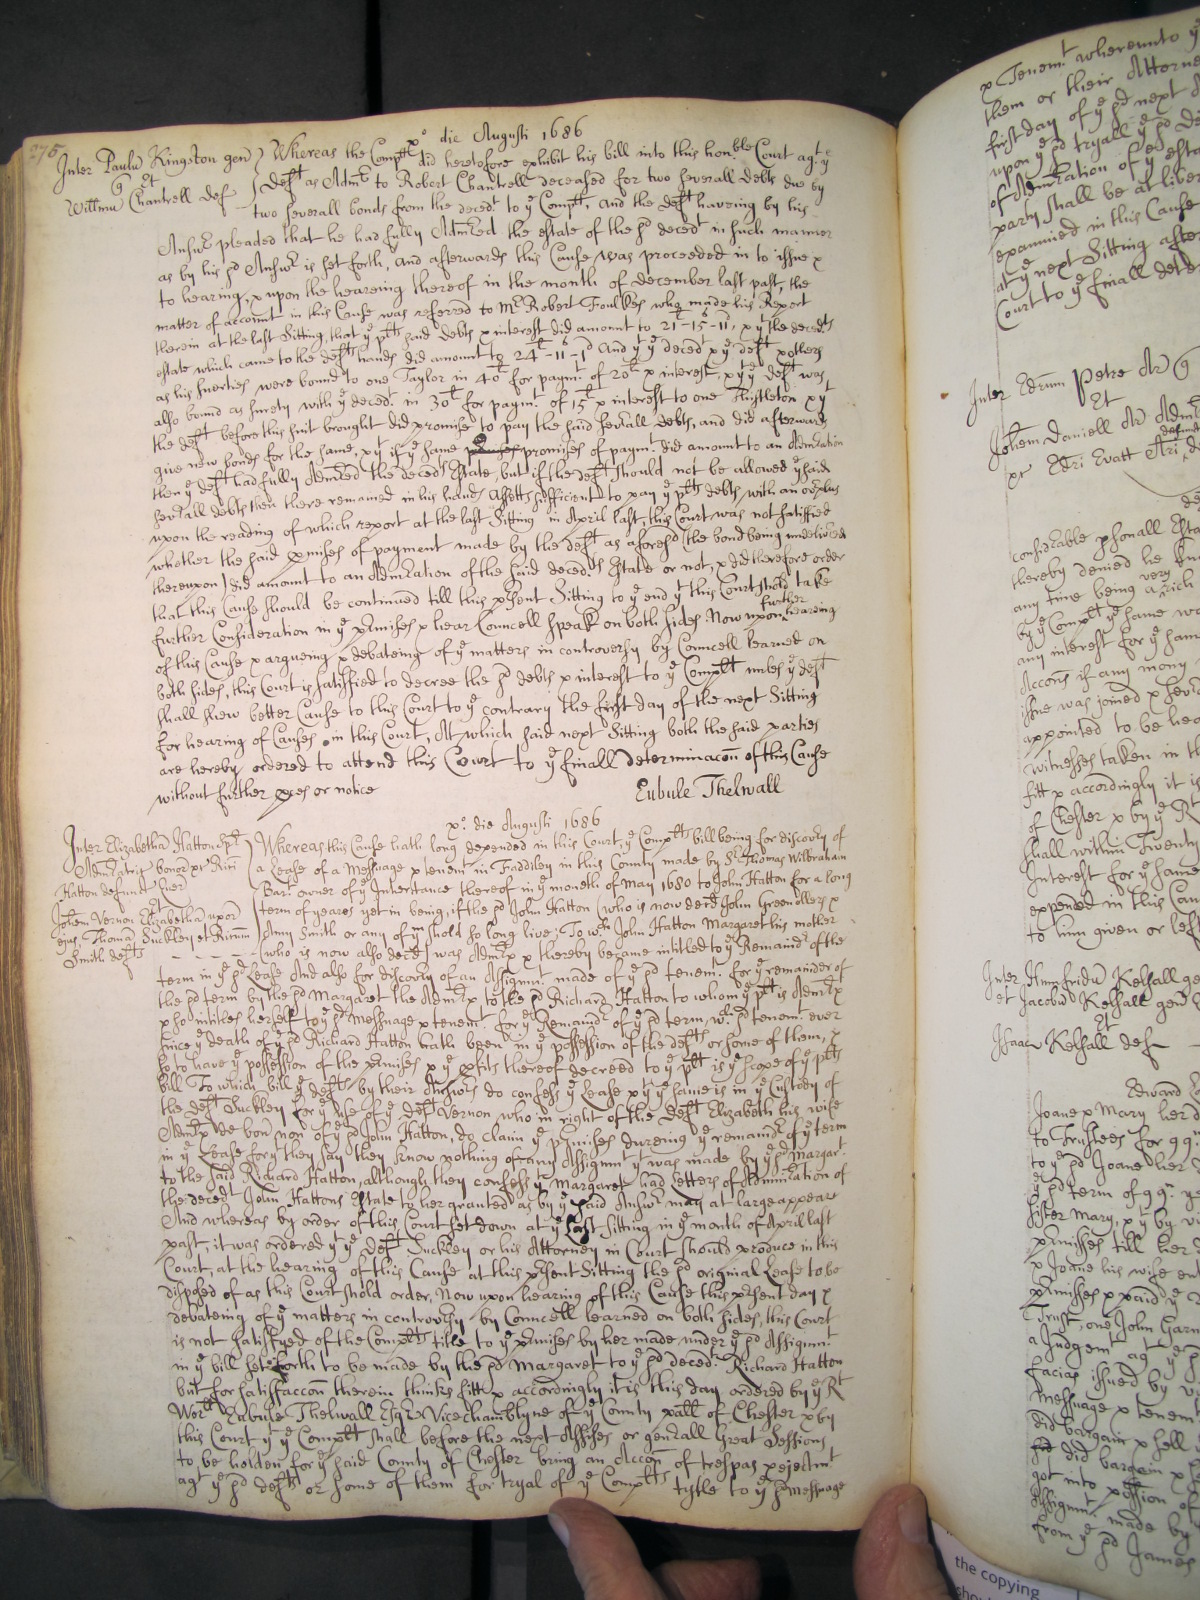 275
x.º die Augusti 1686
Inter Paulu Kingston gen
Et
Willmu Chantrell def
Whereas the Complt did heretofore exhibit his bill into this honble Court agt ye
Deft as Admr to Robert Chantrell deceased for two severall debts due by
two severall bonds from the decedt to ye Complt, and the deft haveing by his
Answr pleaded that he had fully Admred the estate of the sd decedt in such manner
as by his sd Answr is set forth, and afterwards this Cause was proceeded in to issue x
to hearing, x upon the heareing thereof in the month of december last past, the
matter of account in this Cause was referred to Mr Robert Foulkes who made his Report
therein at the last Sitting, that ye plts said debts x interest did amount to 21-15-11, x yt the decedts
estate which came to the defts hands did amount to 24-11-1 And yt ye decedt x ye deft x others
as his suerties were bound to one Taylor in 40l for paymt of 20l x interest, x yt ye deft was
also bound as surety with ye decedt in 30l for paymt of 15l x interest to one Thistleton x yt
the deft before this suit brought did promise to pay the said sevrall debts, and did afterwards
give new bonds for the same, x yt if ye same promises of paymt did amount to an Admration
then ye deft had fully Admred the decedts Estate, but if the deft should not be allowed ye said
sevrall debts then there remained in his hands assetts sufficient to pay ye plts debts with an ovrplus
upon the reading of which report at the last Sitting in April last, this Court was not satisfied
whether the said pmises of payment made by the deft as aforesd (the bond being undelivered
thereupon) did amount to an Admration of the said decedts Estate or not, x did therefore order
that this Cause should be continued till this prsent Sitting to ye end yt this Court should take
further Consideration in ye prmises x hear Councell speak on both sides. Now upon further heareing
of this Cause x argueing x debateing of ye matters in controversy by Councell learned on
both sides, this Court is satisfied to decree the sd debts x interest to ye Complt unles ye deft
shall shew better Cause to this Court to ye contrary the first day of the next Sitting
for hearing of Causes in this Court, At which said next Sitting both the said parties
are hereby ordered to attend this Court to ye finall determinacon of this Cause
without further pces or notice
Eubule Thelwall
x.º die Augusti 1686
Inter Elizabetha Hatton
Admratrix bonor pr Rici
Hatton defunct Quer
Et
Johem Vernon Elizabetha uxor
ejus, Thoma Buckley et Ricum
Smith defts
Whereas this Cause hath long depended in this Court, ye Complts bill being for discovry of
a Lease of a Messuage x tenemt in Faddiley in this County made by Sr Thomas Wilbraham
Bart owner of ye Inheritance thereof in ye moneth of May 1680 to John Hatton for a long
term of yeares yet in being, if the sd John Hatton (who is now decd) John Greendlers x
Amy Smith or any of ym shold so long live; To wch John Hatton Margaret his mother
(who is now also decd) was Admrx x thereby became intitled to ye Remaindr of the
term in ye sd Lease And also for discovry of an Assignmt made of ye sd tenemt for ye remainder of
the sd term by the sd Margaret the Admrx to the sd Richard Hatton to whom ye plt is Admrx
x so intitles herself to ye sd Messuage x tenemt for ye Remaindr of ye sd term, wch sd tenemt ever
since ye death of ye sd Richard Hatton hath been in ye possession of the defts or some of them, x
so to have ye possession of the prmises x ye pfits thereof decreed to ye plt is ye scope of ye plts
bill To which bill ye defts by their Answrs do confess ye Lease x yt ye same is in ye Custody of
the deft Buckley for ye use of ye deft Vernon who in right of the deft Elizabeth his wife
Admrx de bon non of ye sd John Hatton, do claim ye prmises dureing ye remaindr of ye term
in ye Lease for yt they say they know nothing of any Assignmt yt was made by ye sd Margart
to the said Richard Hatton, although they confess yt Margaret had Letters of Administration of
the decedt John Hattons Estate to her granted as by ye said Answr may at large appeare
And whereas by order of this Court set down at ye Last Sitting in ye month of April last
past, it was ordered yt ye deft Buckley or his Attorney in Court should produce in this
Court, at the hearing of this Cause at this prsent Sitting the sd original Lease to be
disposed of as this Court shold order, Now upon hearing of this Cause this prsent day x
debateing of ye matters in controvrsy by Councell learned on both sides, this Court
is not satisfyed of the Complts title to ye prmises by her made under ye sd Assignmt
in ye bill set forth to be made by the sd Margaret to ye sd decedt Richard Hatton
but for satisfaccon therein thinks fitt x accordingly it is this day ordered by ye Rt
Worll Eubule Thelwall Esqr Vicechamblyne of ye County pall of Chester x by
this Court yt ye Complt shall before the next Assises or genrall Great Sessions
to be holden for ye said County of Chester bring an Accon of trespas x ejectmt
agt ye sd defts or some of them for tryal of ye Complts tytle to ye sd Messuage
x Tenemt whereunto ye
them or their Attorne
first day of ye sd next
upon ye sd tryall ye sd
of Admration of ye esta
party shall be at liber
examined in this Cause
at ye next Sitting after
Court to ye finall dete
Inter Edrum Petre Ar
Et
Johem Daniell Ar Adm
pr Edri Evatt Ari
considrable psonall Esta
thereby denied he kne
any time being a very rich
by ye Complt ye same wa
any interest for ye same
Accons if any mony
issue was joined x sevr
appointed to be hea
Witnesses taken in th
fitt x accordingly it is
of Chester x by ye Rt
shall within Twenty
Interest for ye same
expended in this Cau
to him given or left
Inter Humfridu Kelsall ge
et Jacobu Kelsall gen
Et
Isaac Kelsall def
Edward
Joane x Mary her
to Trustees for 99
to ye sd Joane her
ye sd term of 99 y
sister Mary, x yt by
prmises till her
x Joane his wife ent
prmises x paid ye
Trust, one John Garn
a Judgemt agt ye
facias issued by
Messuage x tenemt
did bargain x sell
did bargain x
got into possion of
Assignmt made by
from ye sd James
the copying